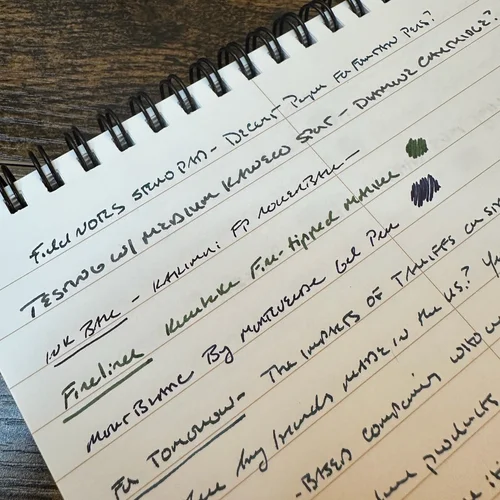 Field Notes Steno Pad - Decent Paper for Fountain Pens?
Testing w/ medium Kaweco Sport - Diamine Cartridge?
Ink Ball - FP rollerball -
Fineliner fine-tipped marker
Mont Blanc By Monteverde Gel Pen
For Tomorrow - The impacts of Tariffs on
any brands made in the US?
-Based companies who
products